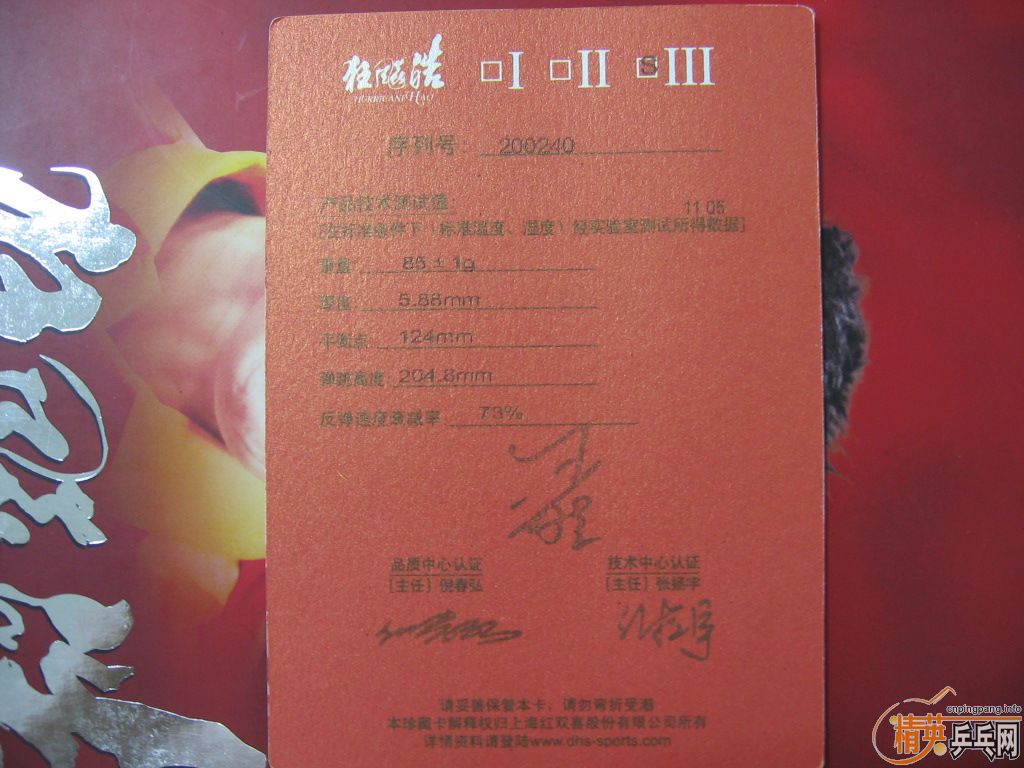 狂飚皓
HURRICANE HAO
□I □II S III
序列号：200240
产品技术测试值：
11.05
[在标准条件下（标准温度、湿度）经实验室测试所得数据]
重量：85 ± 1g
厚度：5.88mm
平衡点：124mm
弹跳高度：204.8mm
反弹速度衰减率：73%
品质中心认证 技术中心认证
[主任] 倪春弘 [主任] 张扬宇
请妥善保管本卡，请勿弯折受潮
本珍藏卡解释权归上海红双喜股份有限公司所有
详情资料请登陆www.dhs-sports.com
cnpingpang.info
精英乒乓网